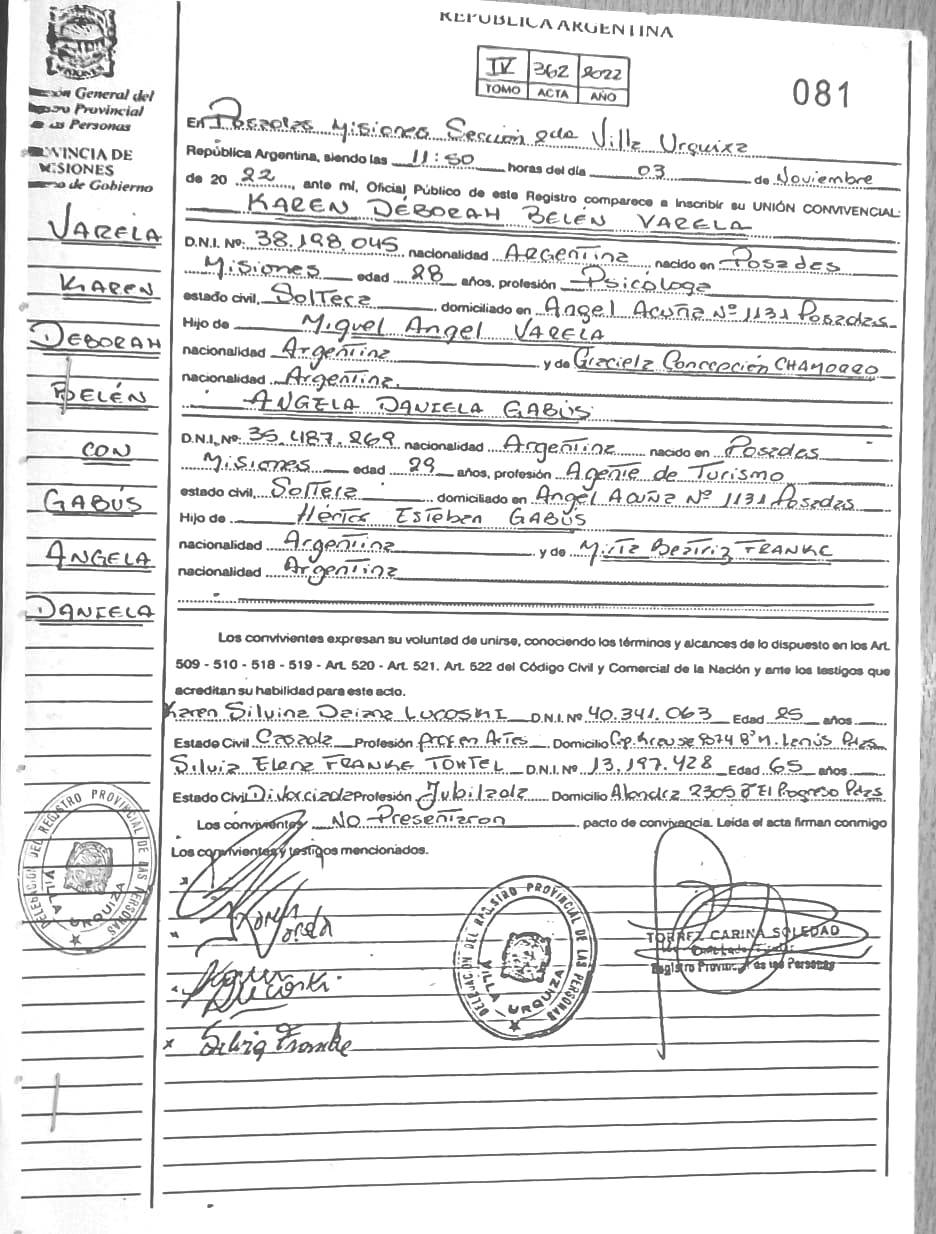 REPUBLICA ARGENTINA
IV 362 2022
TOMO ACTA AÑO
081
General del
Provincial
as Personas
PROVINCIA DE
MISIONES
de Gobierno
VARELA
KAREN
DEBORAH
BELÉN
CON
GABÚS
ANGELA
DANIELA
En Posadas Misiones Sección 2da Villa Urquiza
República Argentina, siendo las 11:50 horas del día 03 de Noviembre
de 20 22, ante mí, Oficial Público de este Registro comparece a inscribir su UNIÓN CONVIVENCIAL:
KAREN DÉBORAH BELÉN VARELA
D.N.I. Nº: 38.198.045 nacionalidad Argentina nacido en Posadas
Misiones edad 28 años, profesión Psicóloga
estado civil, Soltera domiciliado en Angel Acuña Nº 1131 Posadas
Hijo de Miguel Angel VARELA
nacionalidad Argentina y de Graciela Concepción CHAMORRO
nacionalidad Argentina.
ANGELA DANIELA GABÚS
D.N.I. Nº: 35.487.269 nacionalidad Argentina nacido en Posadas
Misiones edad 29 años, profesión Agente de Turismo
estado civil, Soltera domiciliado en Angel Acuña Nº 1131 Posadas
Hijo de Héctor Esteban GABÚS
nacionalidad Argentina y de Mirta Beatriz FRANKE
nacionalidad Argentina
Los convivientes expresan su voluntad de unirse, conociendo los términos y alcances de lo dispuesto en los Art.
509 - 510 - 518 - 519 - Art. 520 - Art. 521. Art. 522 del Código Civil y Comercial de la Nación y ante los testigos que
acreditan su habilidad para este acto.
Karen Silvina Daiana LUCOSKI D.N.I. Nº 40.341.063 Edad 25 años
Estado Civil Casada Profesión Prof en Artes Domicilio Cap. Krause 8574 Bº M. Lanús Pdas
Silvia Elena FRANKE TONTEL D.N.I. Nº 13.197.428 Edad 65 años
Estado Civil Divorciada Profesión Jubilada Domicilio 2305 Bº El Progreso Pdas
Los convivientes No Presentaron pacto de convivencia. Leída el acta firman conmigo
Los convivientes y testigos mencionados.
DELEGACIÓN DEL REGISTRO PROVINCIAL DE LAS PERSONAS
VILLA URQUIZA
Karen
Varela
DELEGACIÓN DEL REGISTRO PROVINCIAL DE LAS PERSONAS
VILLA URQUIZA
TORREZ CARINA SOLEDAD
Registro Provincial de las Personas
x Silvia Franke